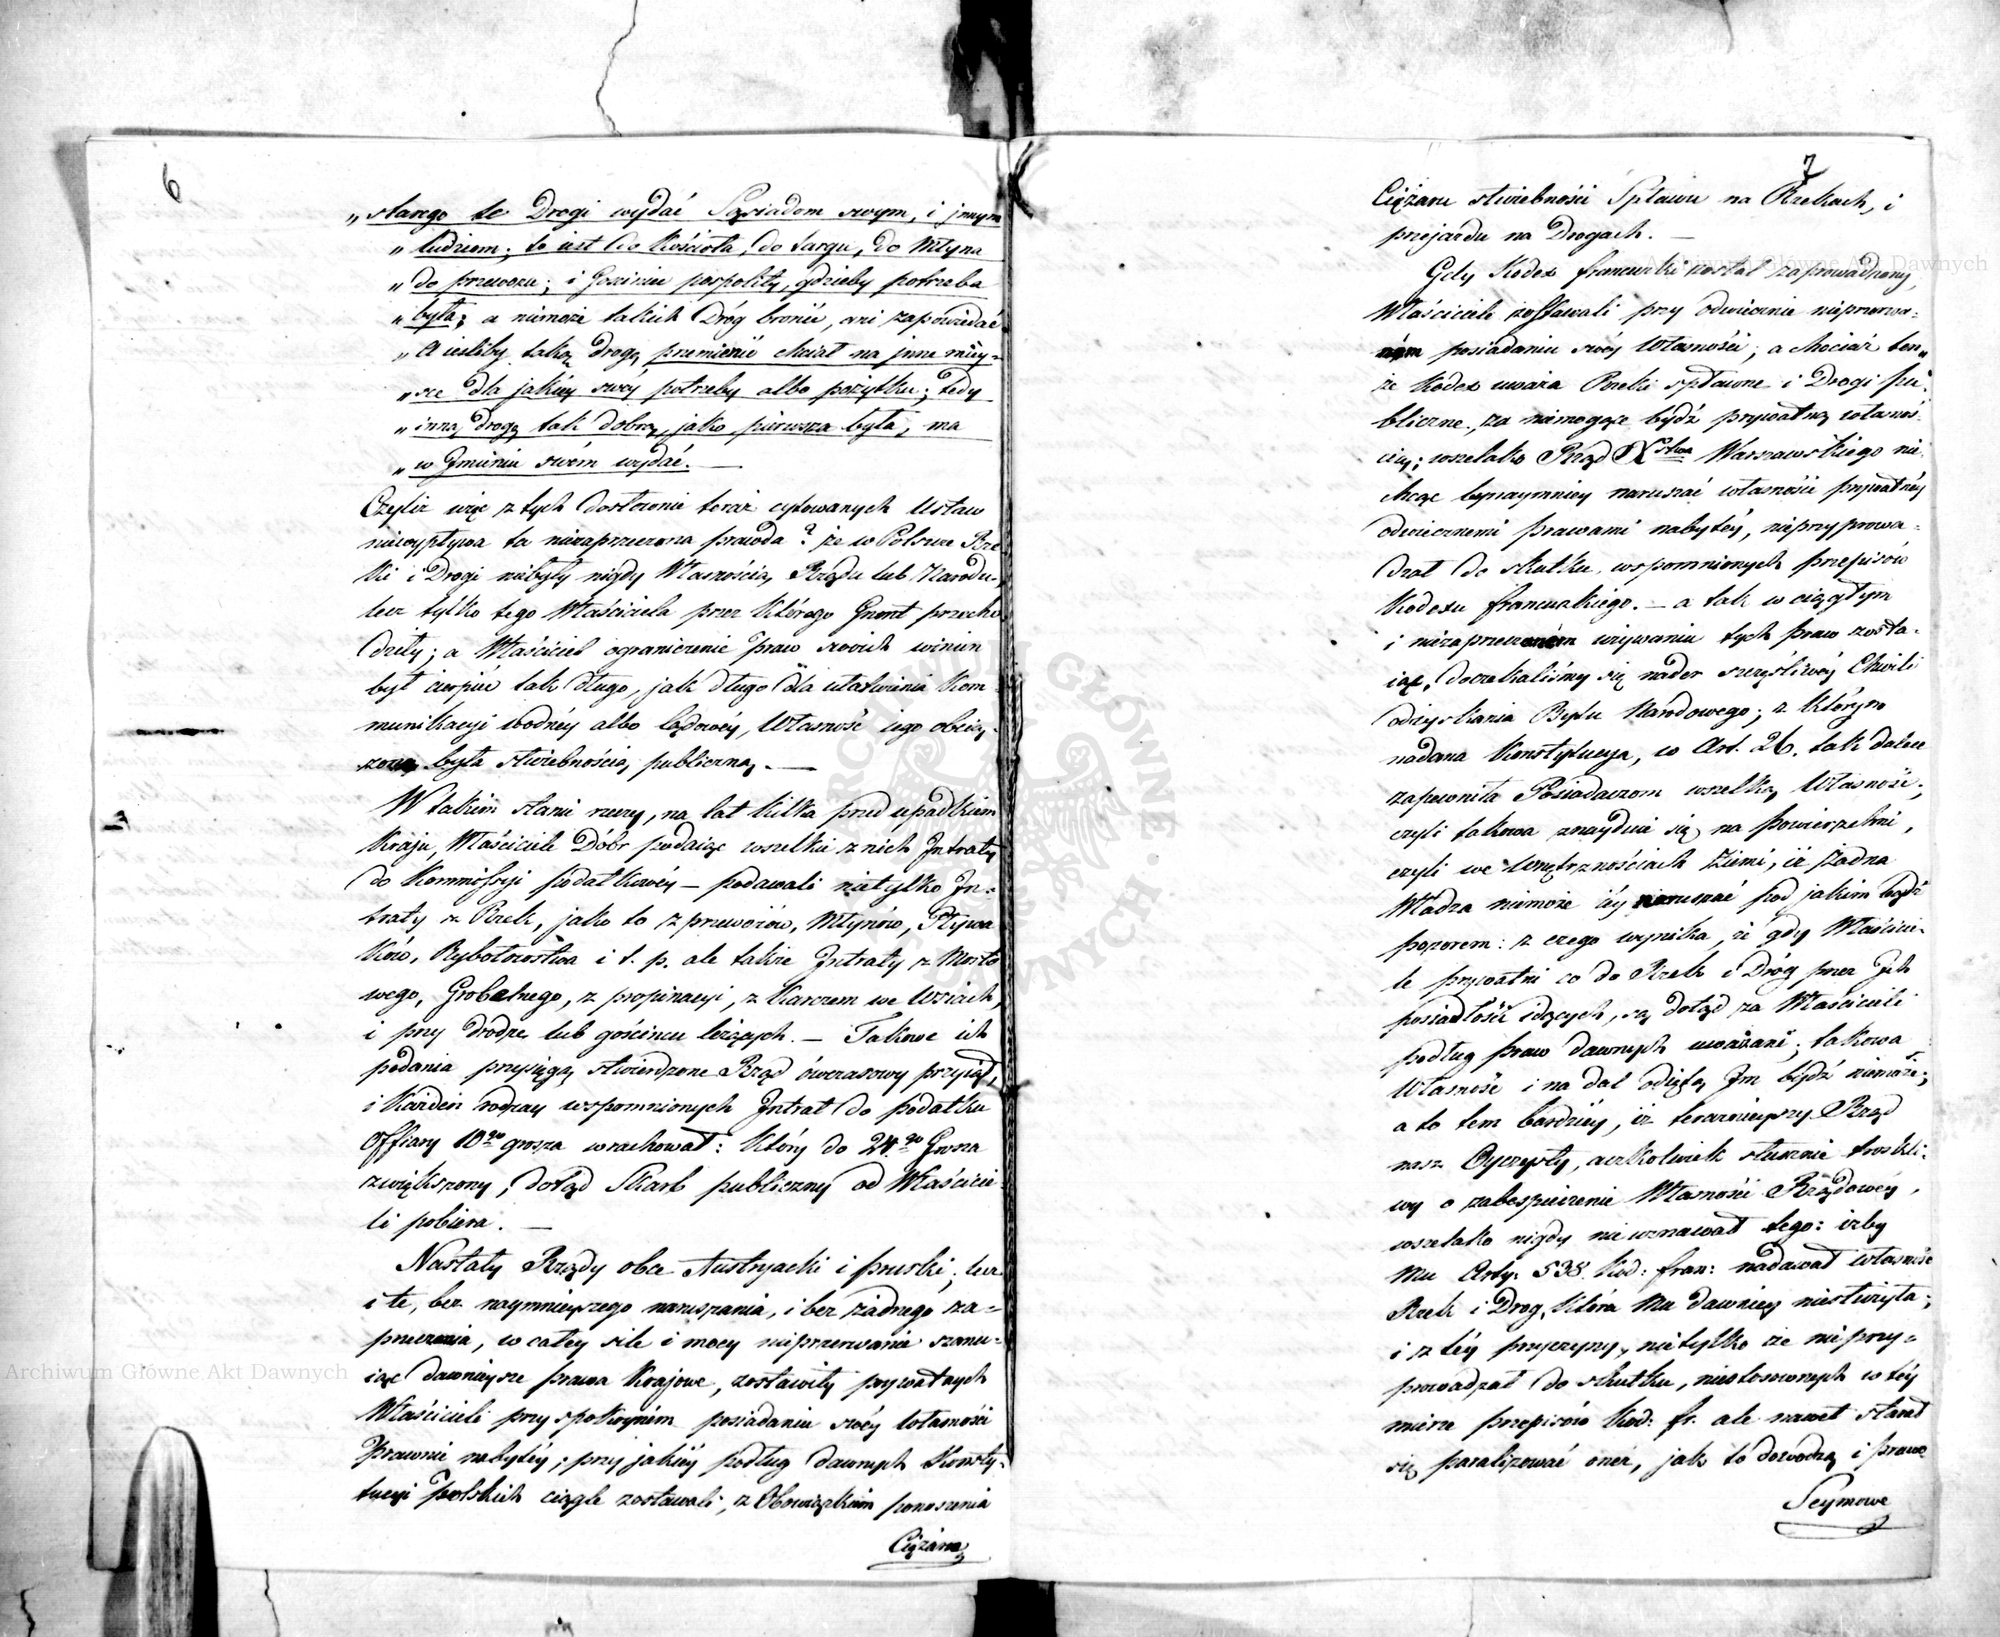 6
„starego te Drogi wydać Sąsiadom swym, i jnnym
„ludziom; to iest do Kościoła, do targu, do Młyna
„do przewozu; i Gościniec pospolity, gdzieby potrzeba
„była; a niemoże takich Dróg bronić, ani zapowiedać
„A iesliby taką drogę przemienić chciał na jnne miey-
„sce dla jakiéy swéy potrzeby albo pożytku; tedy
„inną drogę tak dobrą, jako pierwsza była, ma
„w Jmieniu swém wydać. —
Czyliż więc z tych dosłownie teraz cytowanych Ustaw
niewypływa ta niezaprzeczona prawda? że w Polszcze Rze-
ki i Drogi niebyły nigdy Własnością Rządu lub Narodu,
lecz tylko tego Właściciela przez którego Grunt przecho
dziły; a Właściciel ograniczenie Praw swoich winien
był cierpieć tak długo, jak długo dla ułatwienia Kom-
munikacyi wodnéy albo lądowéy, Własność iego obcią-
zoną była służebnością publiczną. —
W takim stanie rzeczy, na lat kilka przed upadkiem
Kraju, Właściciele Dóbr podaiąc wszelkie z nich Jntraty
do Kommissyi podatkowéy — podawali nietylko Jn-
traty z Rzek, jako to z przewozów, Młynów, Pływa
ków, Rybołowstwa i t. p. ale także Jntraty z Mosto
wego, Grobelnego, z propinacyi, z Karczem we Wsiach,
i przy drodze lub gościńcu leżących. — Takowe ich
podania przysięgą stwierdzone Rząd ówczasowy przyiął,
i każden rodzay wspomnionych Jntrat do podatku
Offiary 10go grosza wrachował: który do 24go Grosza
zwiększony, dotąd Skarb publiczny od Właścicie
li pobiera. —
Nastały Rządy obce Austryacki i pruski; lecz
i te, bez naymnieyszego naruszania, i bez żadnego za-
przeczenia, w całey sile i mocy nieprzerwanie szanu-
iąc dawnieysze prawa Krajowe, zostawiły prywatnych
Właścicieli przy spokoyném posiadaniu swéy własności
Prawnie nabytéy; przy jakiéy podług dawnych Konsty-
tucyi Polskich ciągle zostawali, z Obowiązkiem ponoszenia
Ciężaru
7
Ciężaru służebności Spławu na Rzekach, i
przejazdu na Drogach. —
Gdy Kodex francuzki został zaprowadzony,
Właściciele zostawali przy odwiecznie nieprzerwa-
ném posiadaniu swey Własności; a chociaż ten„
że Kodex uważa Rzeki spławne i Drogi pu-
bliczne, za niemogące bydź prywatną własnoś-
cią; wszelako Rząd Xstwa Warszawskiego nie
chcąc bynaymniey naruszać własności prywatnéy
odwiecznemi prawami nabytéy, nieprzyprowa-
dzał do skutku wspomnionych przepisów
Kodexu francuzkiego. — a tak w ciągłym
i niezaprzeczoném używaniu tych praw zosta-
iąc, doczekaliśmy się nader szczęśliwéy Chwili
odzyskania Bytu Narodowego; z którym
nadana Konstytucya, w Art. 26. tak dalece
zapewniła Posiadaczom wszelką Własność;
czyli takowa znayduie się na powierzchni,
czyli we wnętrznościach Ziemi, iż żadna
Władza niemoże iéy naruszać pod jakim bądź
pozorem: z czego wynika, że gdy Właścicie-
le prywatni co do Rzek i Dróg przez Jch
posiadłości idących, są dotąd za Właścicieli
podług praw dawnych uważani; takowa
Własność i na dal odiętą Jm bydź niemoże;
a to tem bardziéy, iż teraznieyszy Rząd
nasz Oyczysty, aczkolwiek słusznie troskli-
wy o zabespieczenie Własności Rządowéy,
wszelako nigdy nie uznawał tego: iżby
Mu Arty: 538. Kod: fran: nadawał własność
Rzek i Drog, która Mu dawniey niesłużyła;
i z téy przyczyny, nietylko że nieprzy-
prowadzał do skutku, niestosownych w téy
mierze przepisów Kod: fr. ale nawet starał
się paralizować onéż, jak to dowodzą i prawa
Seymowe
Archiwum Główne Akt Dawnych
Archiwum Główne Akt Dawnych
ARCHIWUM GŁÓWNE AKT DAWNYCH